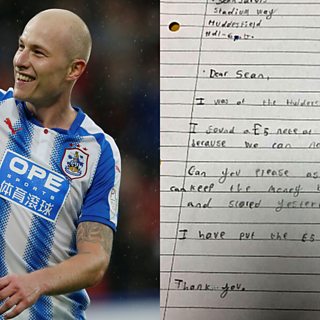 OPE
SPORTS
体育滚球
Stadium Way
Huddersfield
HD1
Dear Sean,
I was at the Hudders
I found a £5 note at
because we can ne
Can you please as
can keep the money
and scored yester
I have put the £5
Thank you.